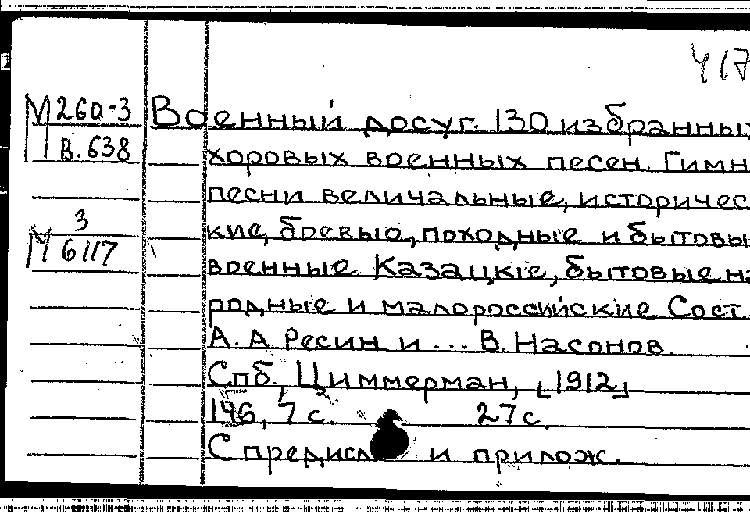 417
М 260-3
В.638
Военный досуг. 130 избранных
хоровых военных песен. Гимн
песни величальные, историчес
кие, боевые, походные и бытовы
3
М 6117
военные Казацкие, бытовые на
родные и малороссийские Сост.
А. А Ресин и ... В. Насонов.
Спб, Циммерман, [1912]
146, 7 с. 27 с.
С предисл и прилож.